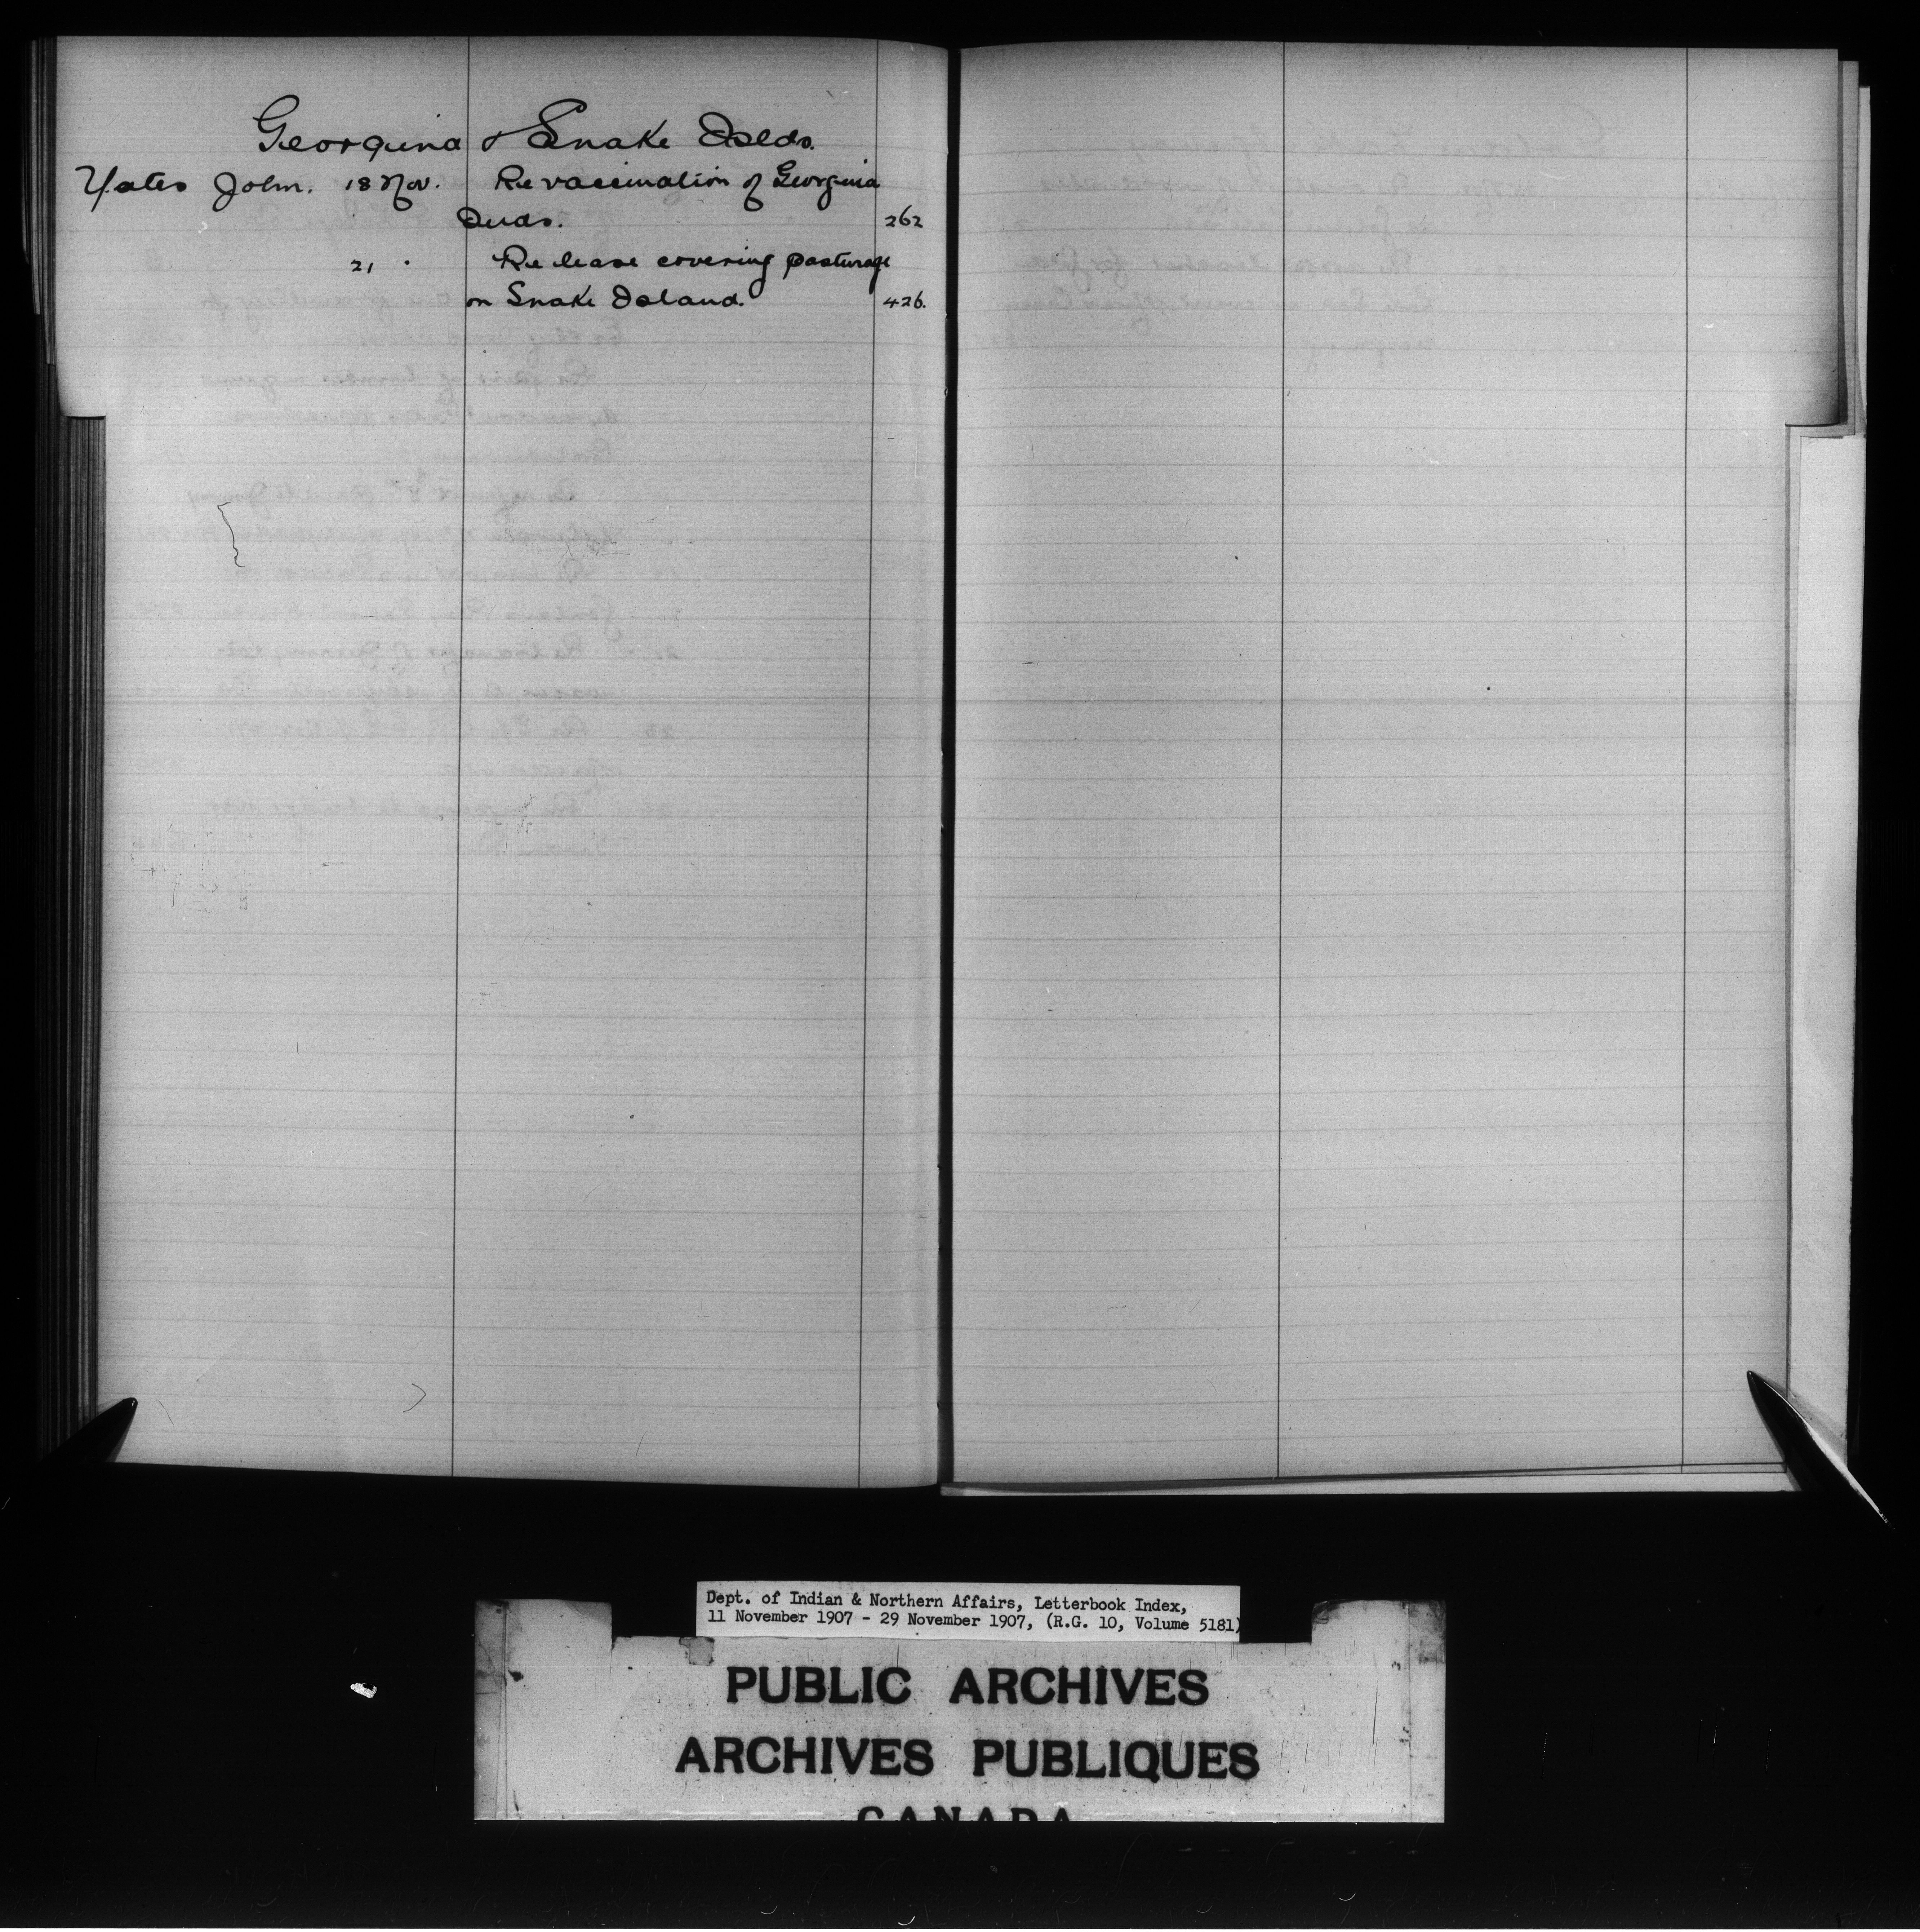 Georgina & Snake Islds.
Yates John. 18 Nov. Re vaccination of Georgina
Inds. 262
21 " Re lease covering pasturage
on Snake Island. 426.
Dept. of Indian & Northern Affairs, Letterbook Index,
11 November 1907 - 29 November 1907, (R.G. 10, Volume 5181)
PUBLIC ARCHIVES
ARCHIVES PUBLIQUES
CANADA